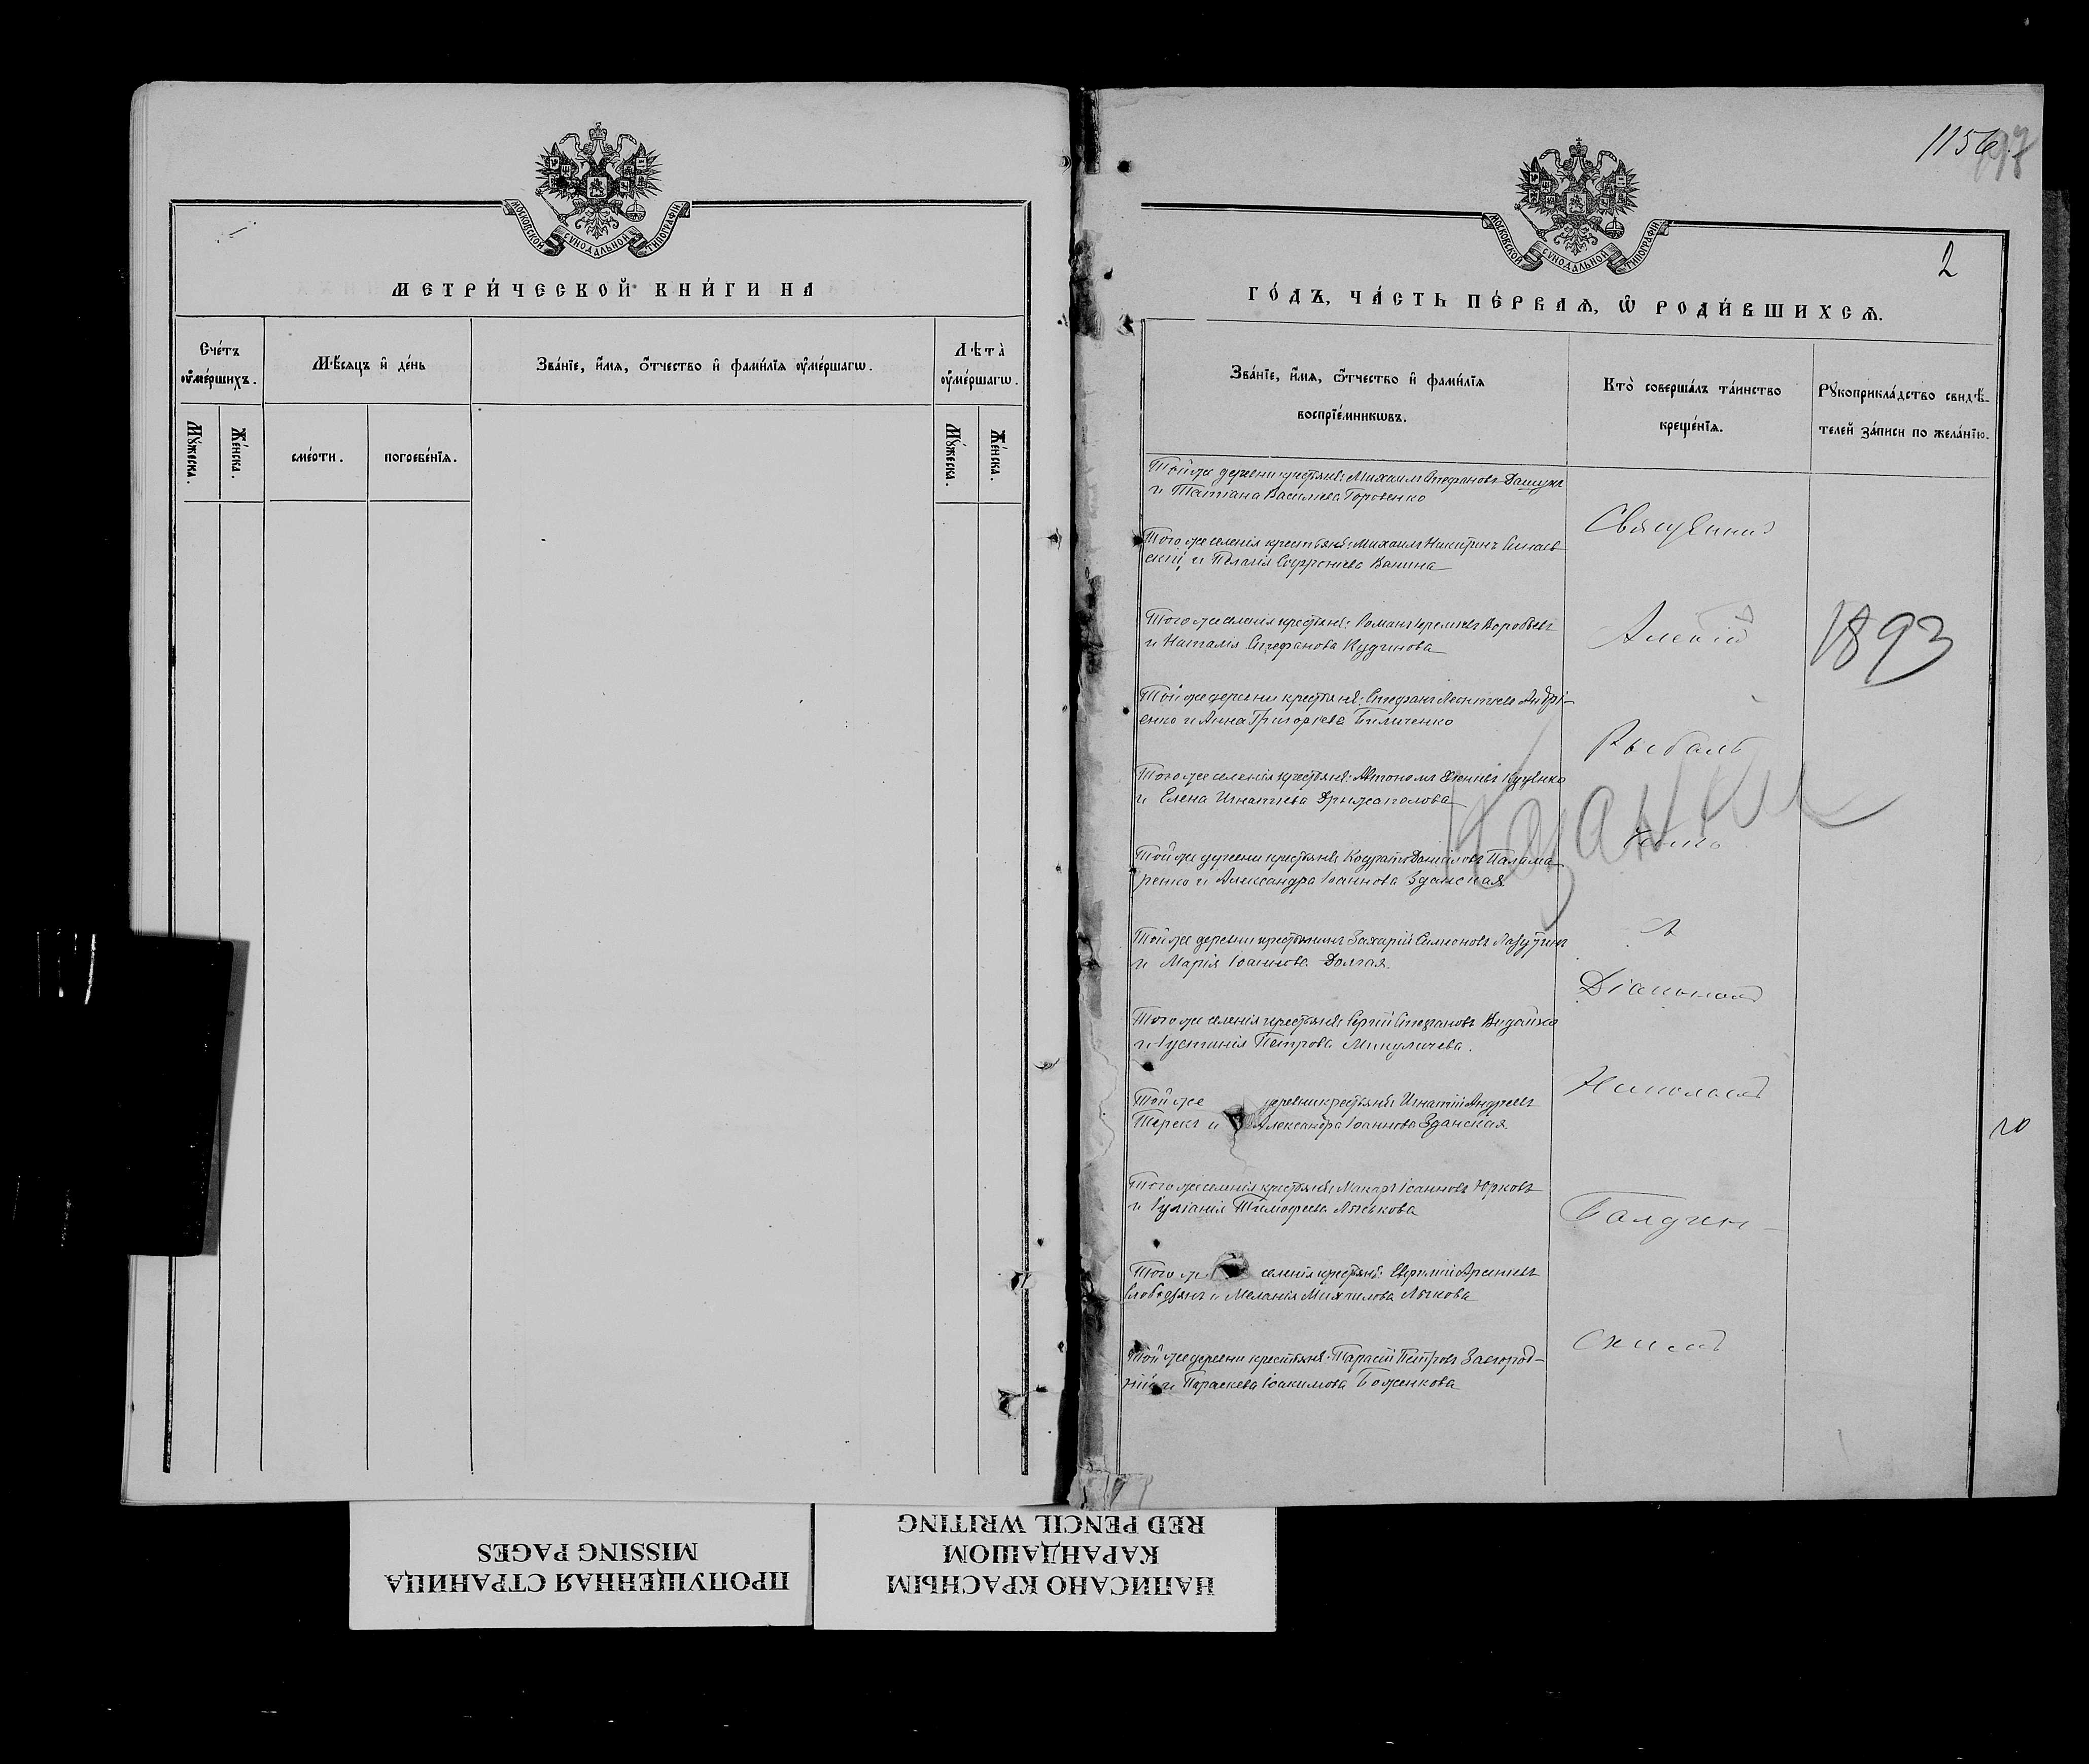 МОСКОВСКОЙ СѴНОДАЛЬНОЙ ТИПОГРАФІИ
МЕТРИ́ЧЕСКОЙ КНИ́ГИ НА
Сче́тъ ᲂу҆ме́ршихъ.
Мѣ́сѧцъ и҆ де́нь
Зва́нїе, и҆́мѧ, ѻ҆́тчество и҆ фами́лїѧ ᲂу҆ме́ршагѡ.
Лѣ̀та ᲂу҆ме́ршагѡ.
Мꙋ́жеска.
Же́нска.
сме́рти.
погребе́нїѧ.
Мꙋ́жеска.
Же́нска.
1156
МОСКОВСКОЙ СѴНОДАЛЬНОЙ ТИПОГРАФІИ
2
ГО́ДЪ, ЧА́СТЬ ПЕ́РВАѦ, Ѡ҆ РОДИ́ВШИХСѦ.
Зва́нїе, и҆́мѧ, ѻ҆́тчество и҆ фами́лїѧ
воспрїе́мникѡвъ.
Кто̀ соверша́лъ та́инство
креще́нїѧ.
Рꙋкоприкла́дство свидѣ́-
телей за́писи по жела́нїю.
Той же деревни крестьяне: Михаилъ Стефановъ
и Татіана Васильева Горовенко
Того же селенія крестьяне: Михаилъ Никитинъ Синаев
скій и Пелагія Софроніева Ванина
Того же селенія крестьяне: Романъ Воробьевъ
и Наталія Стефанова Кудинова
Той же деревни крестьяне: Стефанъ Леонтіевъ Андрі-
енко и Анна Григорьева Биличенко
Того же селенія крестьяне: Автономъ Куценко
и Елена Игнатіева
Той же деревни крестьяне Кодратъ Даніиловъ Палама
ренко и Александра Іоаннова Зданская
Той же деревни крестьянинъ Захарій Симеоновъ
и Марія Іоаннова Долгая.
Того же селенія крестьяне: Сергій Стефановъ
и Іустинія Петрова Микуличева.
Той же деревни крестьяне Игнатій Андреевъ
Терехъ и Александра Іоаннова Зданская
Того же селенія крестьяне Макаръ Іоанновъ Юрковъ
и Іуліанія Тимофеева Лялькова
Того же селенія крестьяне: Евфимій Арсеніевъ
и Меланія Михаилова
Той же деревни крестьяне: Тарасій Петровъ Загород-
ній и Параскева Іоакимова Боженкова
Священникъ
Алексій
Рыбаль
ченко
съ
Діакономъ
Николаемъ
Балдин-
скимъ
1893
Казанки
20
ПРОПУЩЕННАЯ СТРАНИЦА
MISSING PAGES
НАПИСАНО КРАСНЫМ
КАРАНДАШОМ
RED PENCIL WRITING